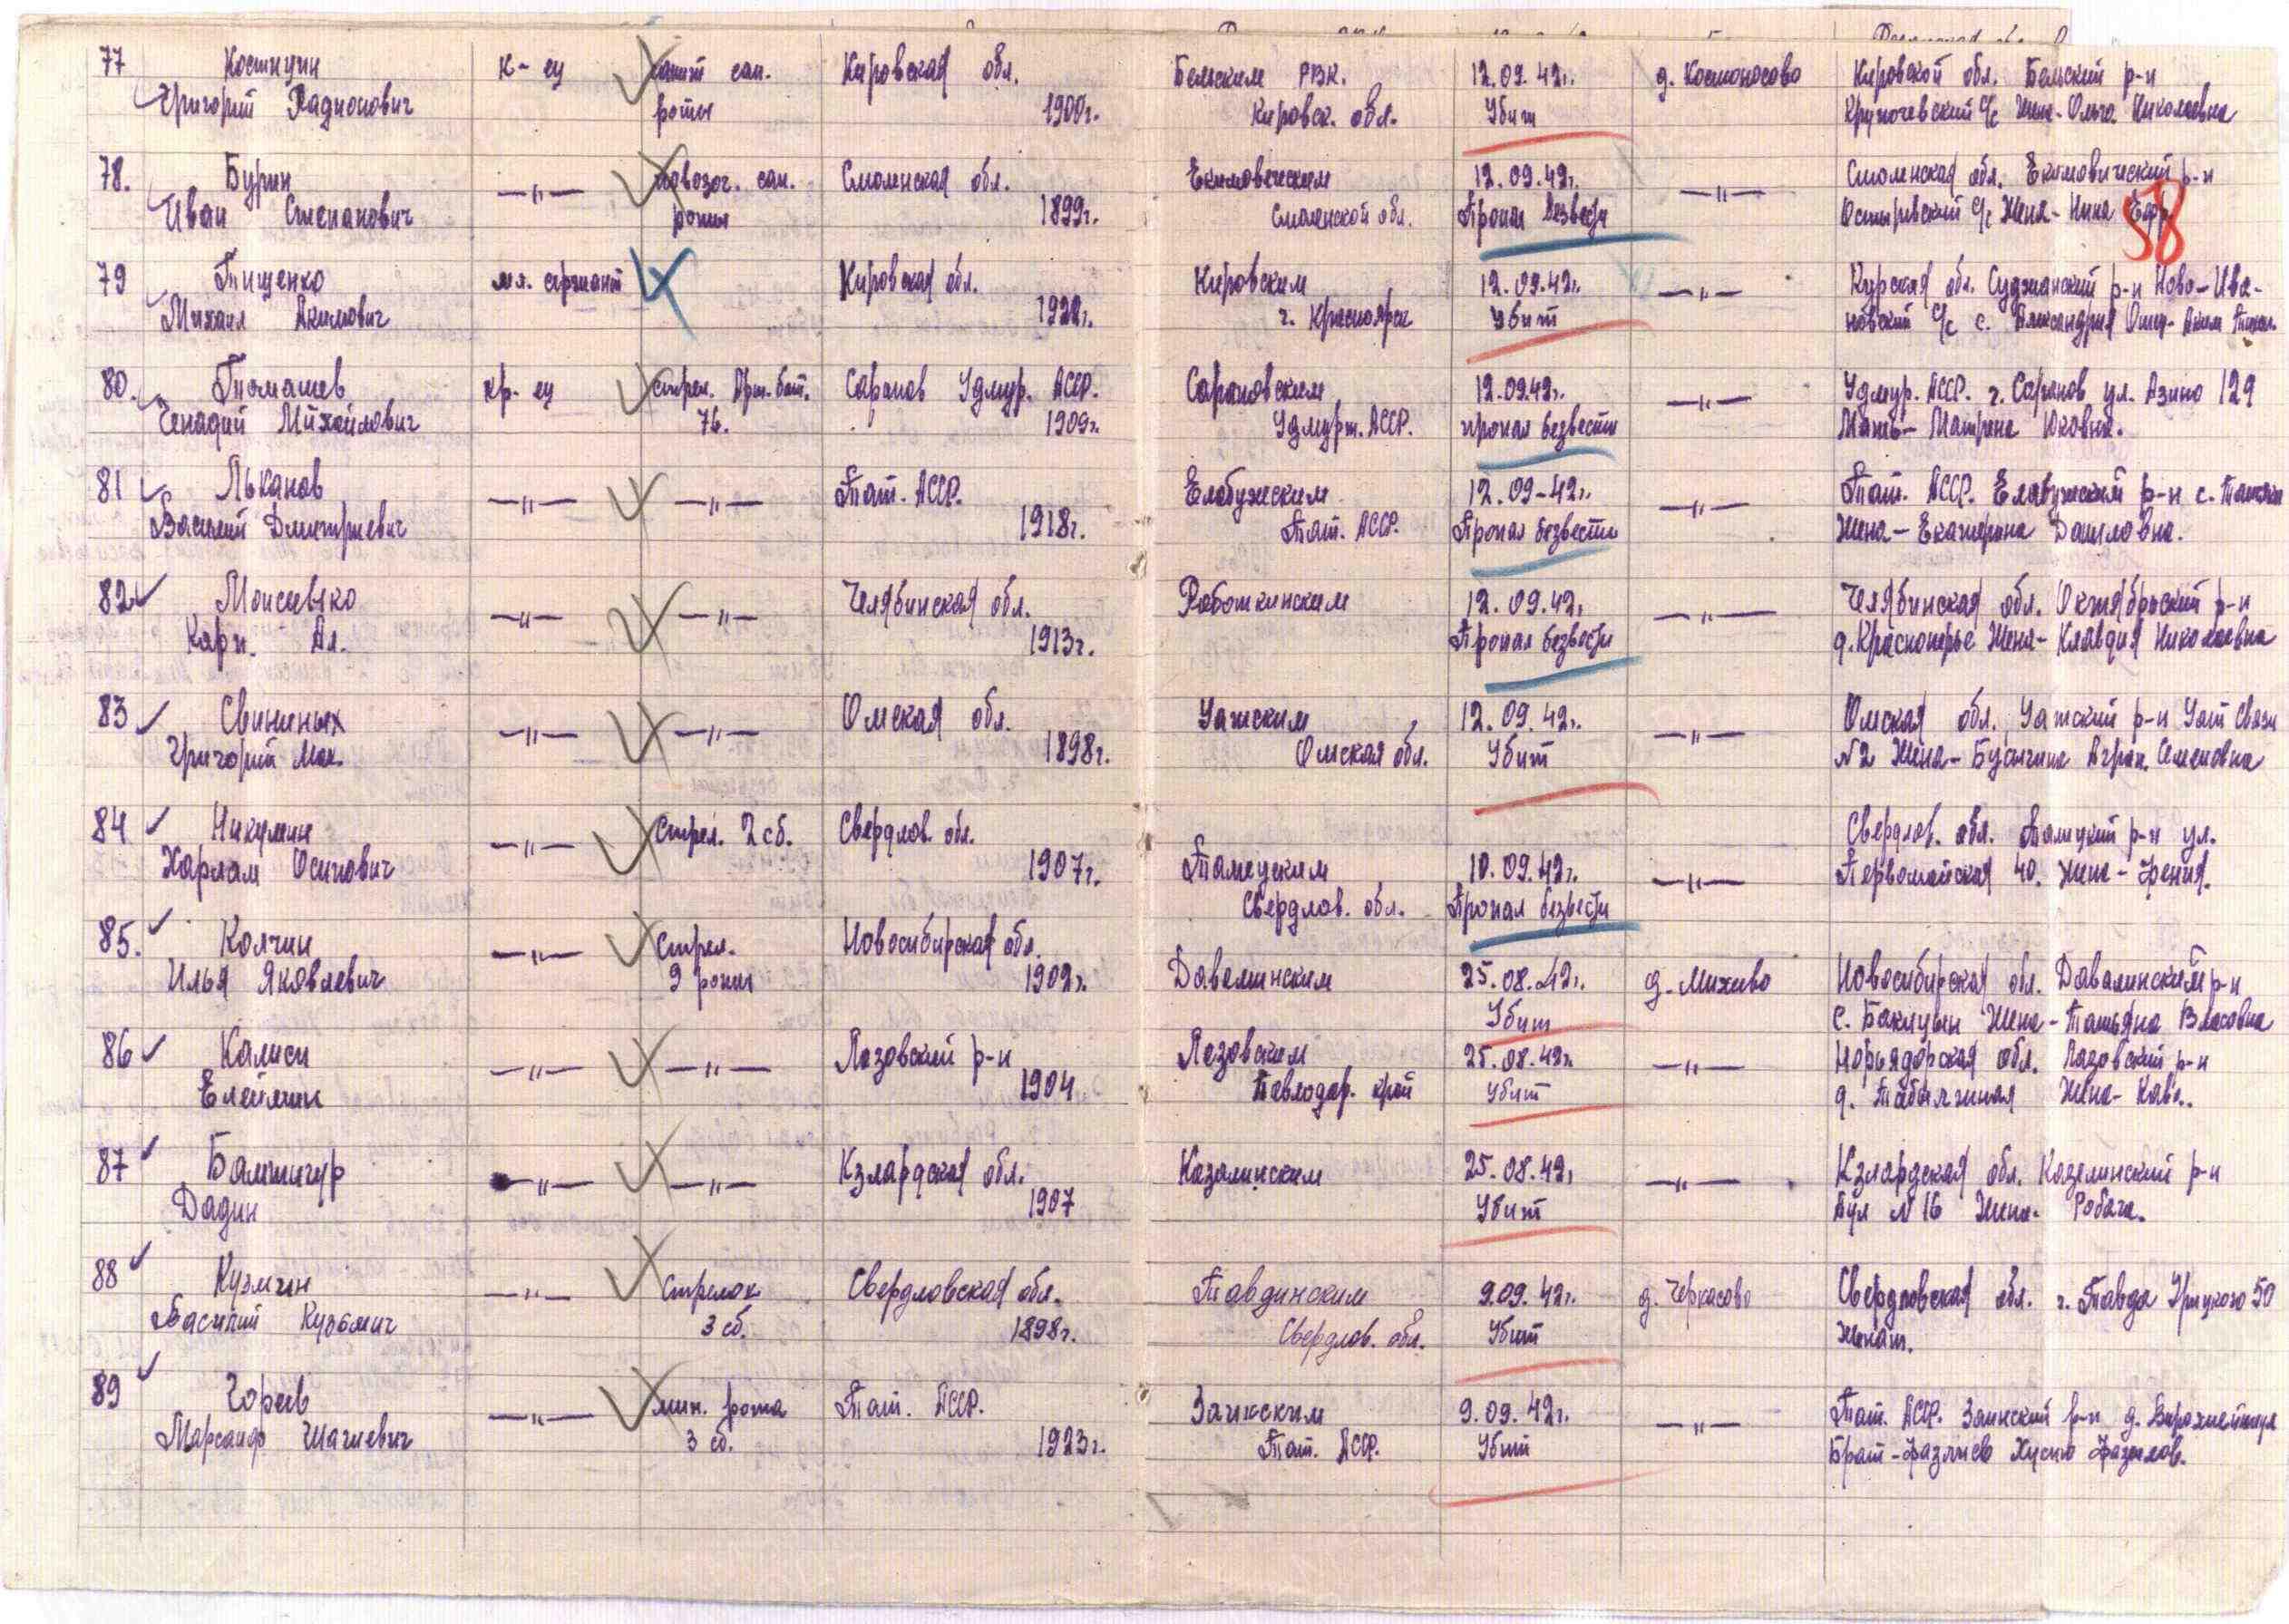 77 Костицин к-ец сан. Кировская обл. Бельским РВК. 12.09.42г. д. Космоносово Кировской обл. Бельский р-н
Григорий Радионович роты 1900г. Кировск. обл. Убит с/с Жена-Ольга Николаевна
78. Бурин —"— повозоч. сан. Смоленская обл. Екимовическим 12.09.42г. —"— Смоленская обл. Екимовический р-н
Иван Степанович роты 1899г. Смоленской обл. Пропал безвести с/с Жена-Нина Ефр.
58
79 Тищенко мл. сержант Кировская обл. Кировским 12.09.42г. —"— Курская обл. Суджанский р-н Ново-Ива-
Михаил Акимович г. Красноярск Убит новский с/с с. Александрия Отец-Аким
80. Томашев кр-ец Стрел. Арт. бат. Сарапов Удмур. АССР. Сараповским 12.09.42г. —"— Удмур. АССР. г. Сарапов ул. Азино 129
Генадий Михайлович 76. 1909г. Удмурт. АССР. пропал безвести Мать-Матрена
81 Лыканов —"— —"— Тат. АССР. Елабужским 12.09-42г. —"— Тат. АССР. Елабужский р-н с.
Василий Дмитриевич 1918г. Тат. АССР. Пропал безвести Жена-Екатерина Даниловна.
82 Моисеенко —"— —"— Челябинская обл. 12.09.42г. —"— Челябинская обл. Октябрьский р-н
Карп. Ал. 1913г. Пропал безвести д. Красноярье Жена-Клавдия Николаевна
83 Свининых —"— —"— Омская обл. Уатским 12.09.42г. —"— Омская обл. Уатский р-н Уат Связи
Григорий Мак. 1898г. Омская обл. Убит N2 Жена-Бусыгина Агрип. Семеновна
84 Никулин —"— Стрел. 2 сб. Свердлов. обл. Свердлов. обл. Талицкий р-н ул.
Харлам Осипович 1907г. Талецким 10.09.42г. —"— Первомайская 40. Жена-Фения.
Свердлов. обл. Пропал безвести
85. Колчин —"— Стрел. Новосибирская обл.
Илья Яковлевич 9 роты 1902г. Даволинским 25.08.42г. д. Михеево Новосибирская обл. Даволинский р-н
Убит с. Баклуши Жена-Татьяна Власовна
86 Калиси —"— —"— Лозовский р-н Лозовским 25.08.42г. —"— обл. Лозовский р-н
1904 Павлодар. край Убит д. Жена-
87 —"— —"— Кзлардская обл. Казалинским 25.08.42г. —"— Кзлардская обл. Казалинский р-н
Дадин 1907 Убит Аул N16 Жена- Робага.
88 Кузмин —"— Стрелок Свердловская обл. Тавдинским 9.09.42г. д. Черкасово Свердловская обл. г. Тавда Урицкого 50
Василий Кузьмич 3 сб. 1898г. Свердлов. обл. Убит Женат.
89 Гореев —"— мин. рота Тат. АССР. Заинским 9.09.42г. —"— Тат. АССР. Заинский р-н д.
Шагиевич 3 сб. 1923г. Тат. АССР. Убит Брат-Фазлиев